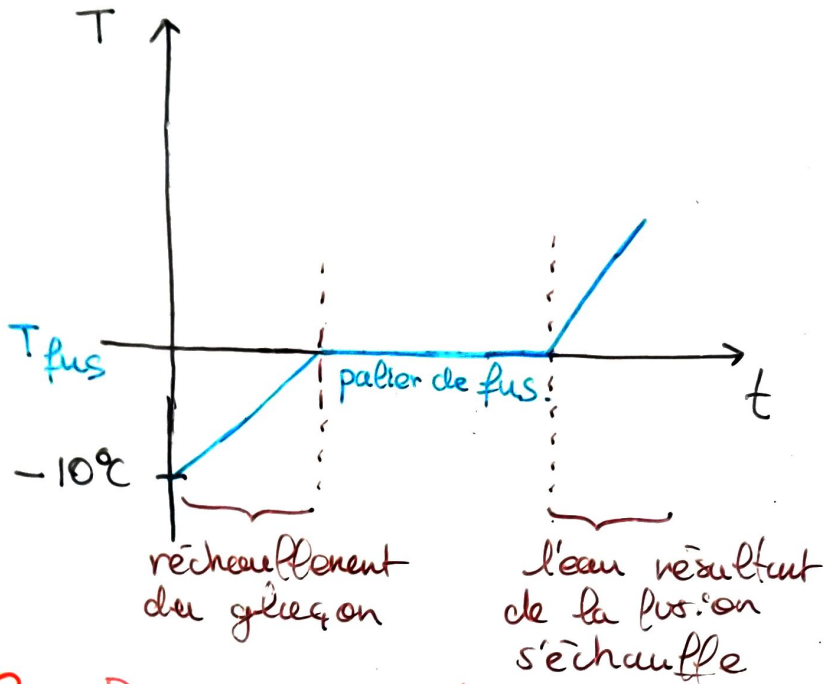 T
T fus
palier de fus.
t
-10°C
réchauffement
du glaçon
l'eau résultant
de la fusion
s'échauffe